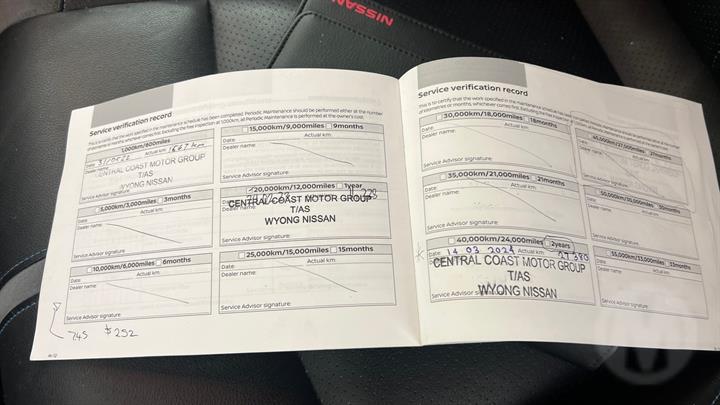 NISSAN
Service verification record
This is to certify that the work specified in the maintenance schedule has been completed. Periodic Maintenance should be performed either at the number
of kilometres or months, whichever comes first. Excluding the free inspection at 1,000km, all Periodic Maintenance is performed at the owner's cost.
1,000km/600miles
Date:
Actual km:
Dealer name:
CENTRAL COAST MOTOR GROUP
T/AS
WYONG NISSAN
Service Advisor signature:
5,000km/3,000miles 3months
Date:
Actual km:
Dealer name:
Service Advisor signature:
10,000km/6,000miles 6months
Date:
Actual km:
Dealer name:
Service Advisor signature:
745 $252
15,000km/9,000miles 9months
Date:
Actual km:
Dealer name:
Service Advisor signature:
20,000km/12,000miles 1year
CENTRAL COAST MOTOR GROUP
T/AS
WYONG NISSAN
Service Advisor signature:
25,000km/15,000miles 15months
Date:
Actual km:
Dealer name:
Service Advisor signature:
Service verification record
This is to certify that the work specified in the maintenance schedule has been
of kilometres or months, whichever comes first.
30,000km/18,000miles 18months
Date:
Actual km:
Dealer name:
Service Advisor signature:
35,000km/21,000miles 21months
Date:
Actual km:
Dealer name:
Service Advisor signature:
40,000km/24,000miles 2years
Date: 14 03 2024
Actual km:
27 380
CENTRAL COAST MOTOR GROUP
T/AS
WYONG NISSAN
Service Advisor
45,000km/27,000miles 27months
Date:
Actual km:
Dealer name:
Service Advisor signature:
50,000km/30,000miles 30months
Date:
Dealer name:
Service Advisor signature:
55,000km/33,000miles 33months
Date:
Actual km:
Dealer name:
Service Advisor signature: